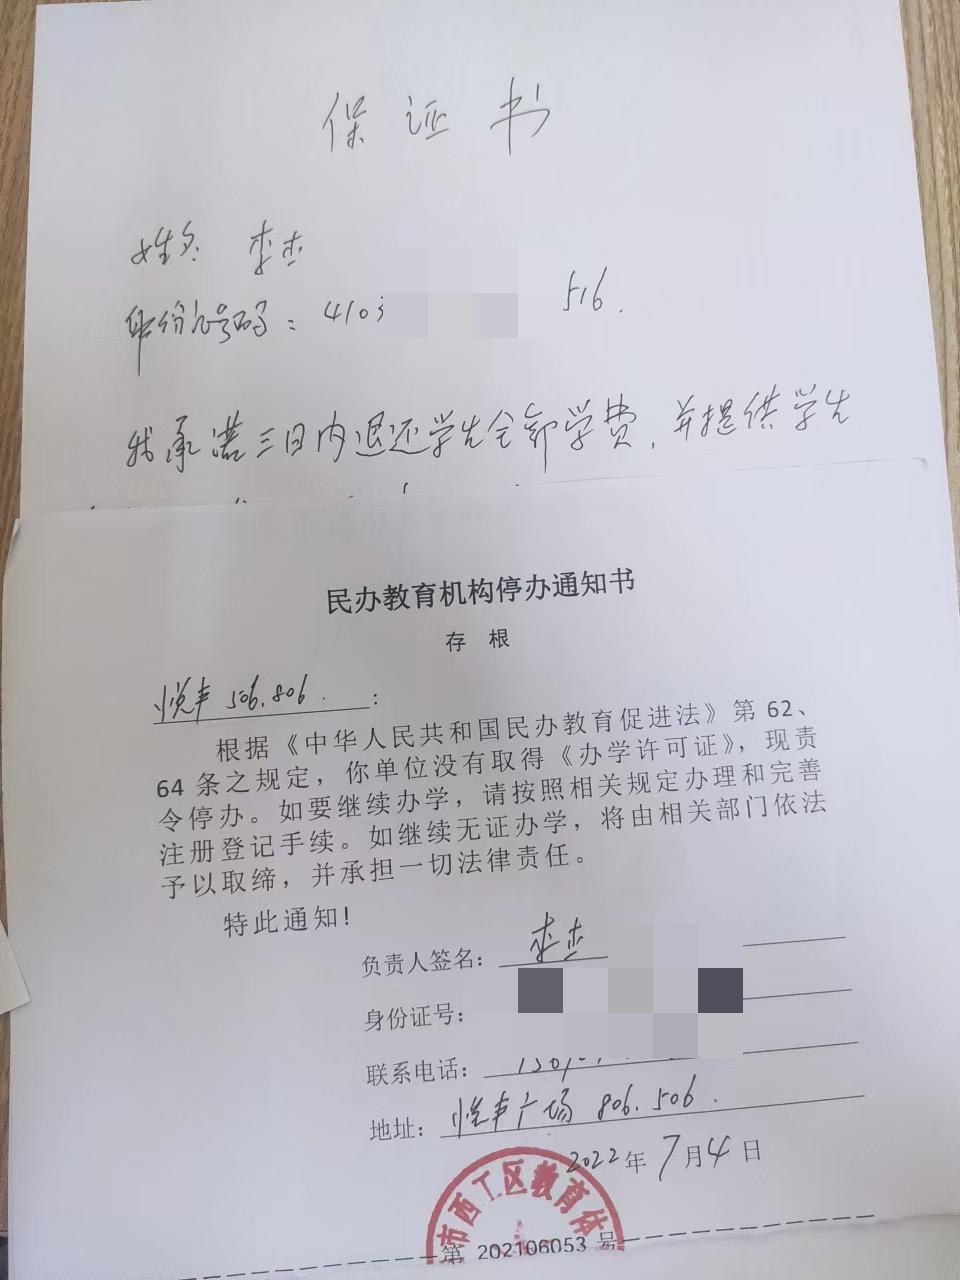 保证书
姓名: 李杰
身份证号码: 4103 516.
我承诺三日内退还学生全部学费,并提供学生
民办教育机构停办通知书
存 根
悦丰 506.806. :
根据《中华人民共和国民办教育促进法》第 62、
64 条之规定，你单位没有取得《办学许可证》，现责
令停办。如要继续办学，请按照相关规定办理和完善
注册登记手续。如继续无证办学，将由相关部门依法
予以取缔，并承担一切法律责任。
特此通知！
负责人签名: 李杰
身份证号:
联系电话:
地址: 悦丰广场 806.506.
2022年7月4日
市西工区教育体
第 202106053 号